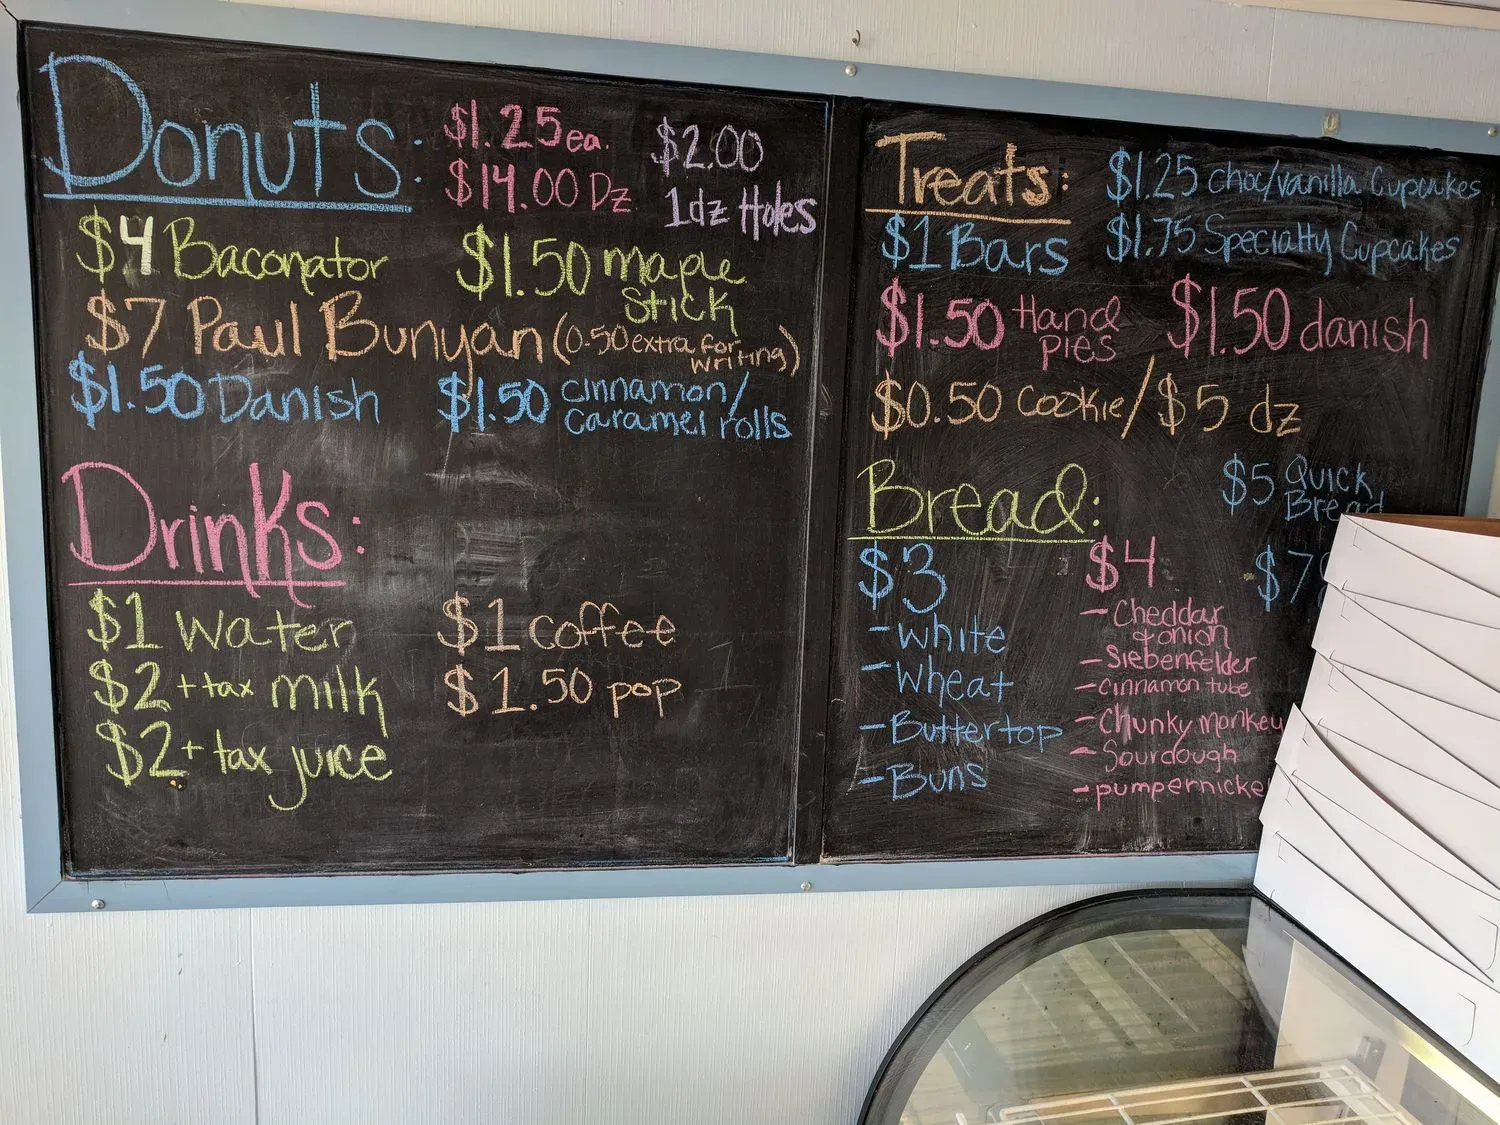 Donuts:
$1.25 ea.
$14.00 Dz
$2.00
1dz Holes
$4 Baconator
$1.50 maple
stick
$7 Paul Bunyan (0.50 extra for
writing)
$1.50 Danish
$1.50 cinnamon/
caramel rolls
Drinks:
$1 water
$2 + tax milk
$2 + tax juice
$1 coffee
$1.50 pop
Treats:
$1.25 choc/vanilla Cupcakes
$1.75 Specialty Cupcakes
$1 Bars
$1.50 Hand
pies
$1.50 danish
$0.50 cookie/$5 dz
Bread:
$5 Quick
Bread
$3
-white
-Wheat
-Buttertop
-Buns
$4
- Cheddar
& onion
- Siebenfelder
- cinnamon tube
- Chunky monkey
- Sourdough
- pumpernicke
$7